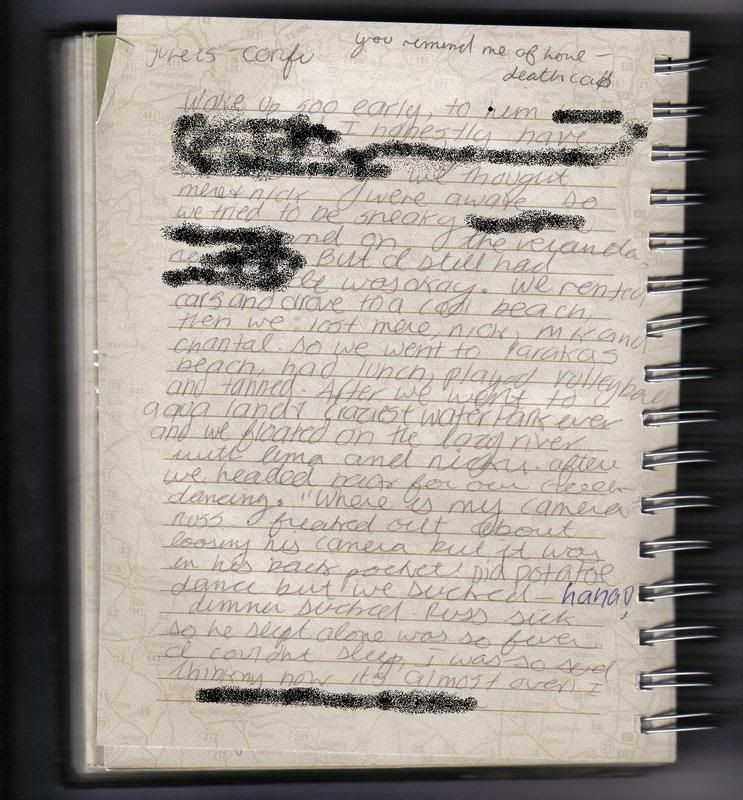 you remind me of home -
deathcab
Wake up soo early, to
I honestly have
we thought
mere + nick were awake so
we tried to be sneaky
and on the veranda
But I still had
was okay. We rented
cars and drove to a cool beach,
then we lost mere, nick, mk and
chantal. So we went to
beach, had lunch, played volleyball
and tanned. After we went to
aqua land? craziest waterpark ever
and we floated on the lazy river
with ema and nicky. after
we headed back for our
dancing. "Where is my camera"
russ freaked out about
loosing his camera but it was
in his back pocket! Did potatoe
dance but we sucked -
dinner sucked. Russ sick
so he slept alone was so fever
I couldnt sleep, i was so sad
thinking how its almost over. I